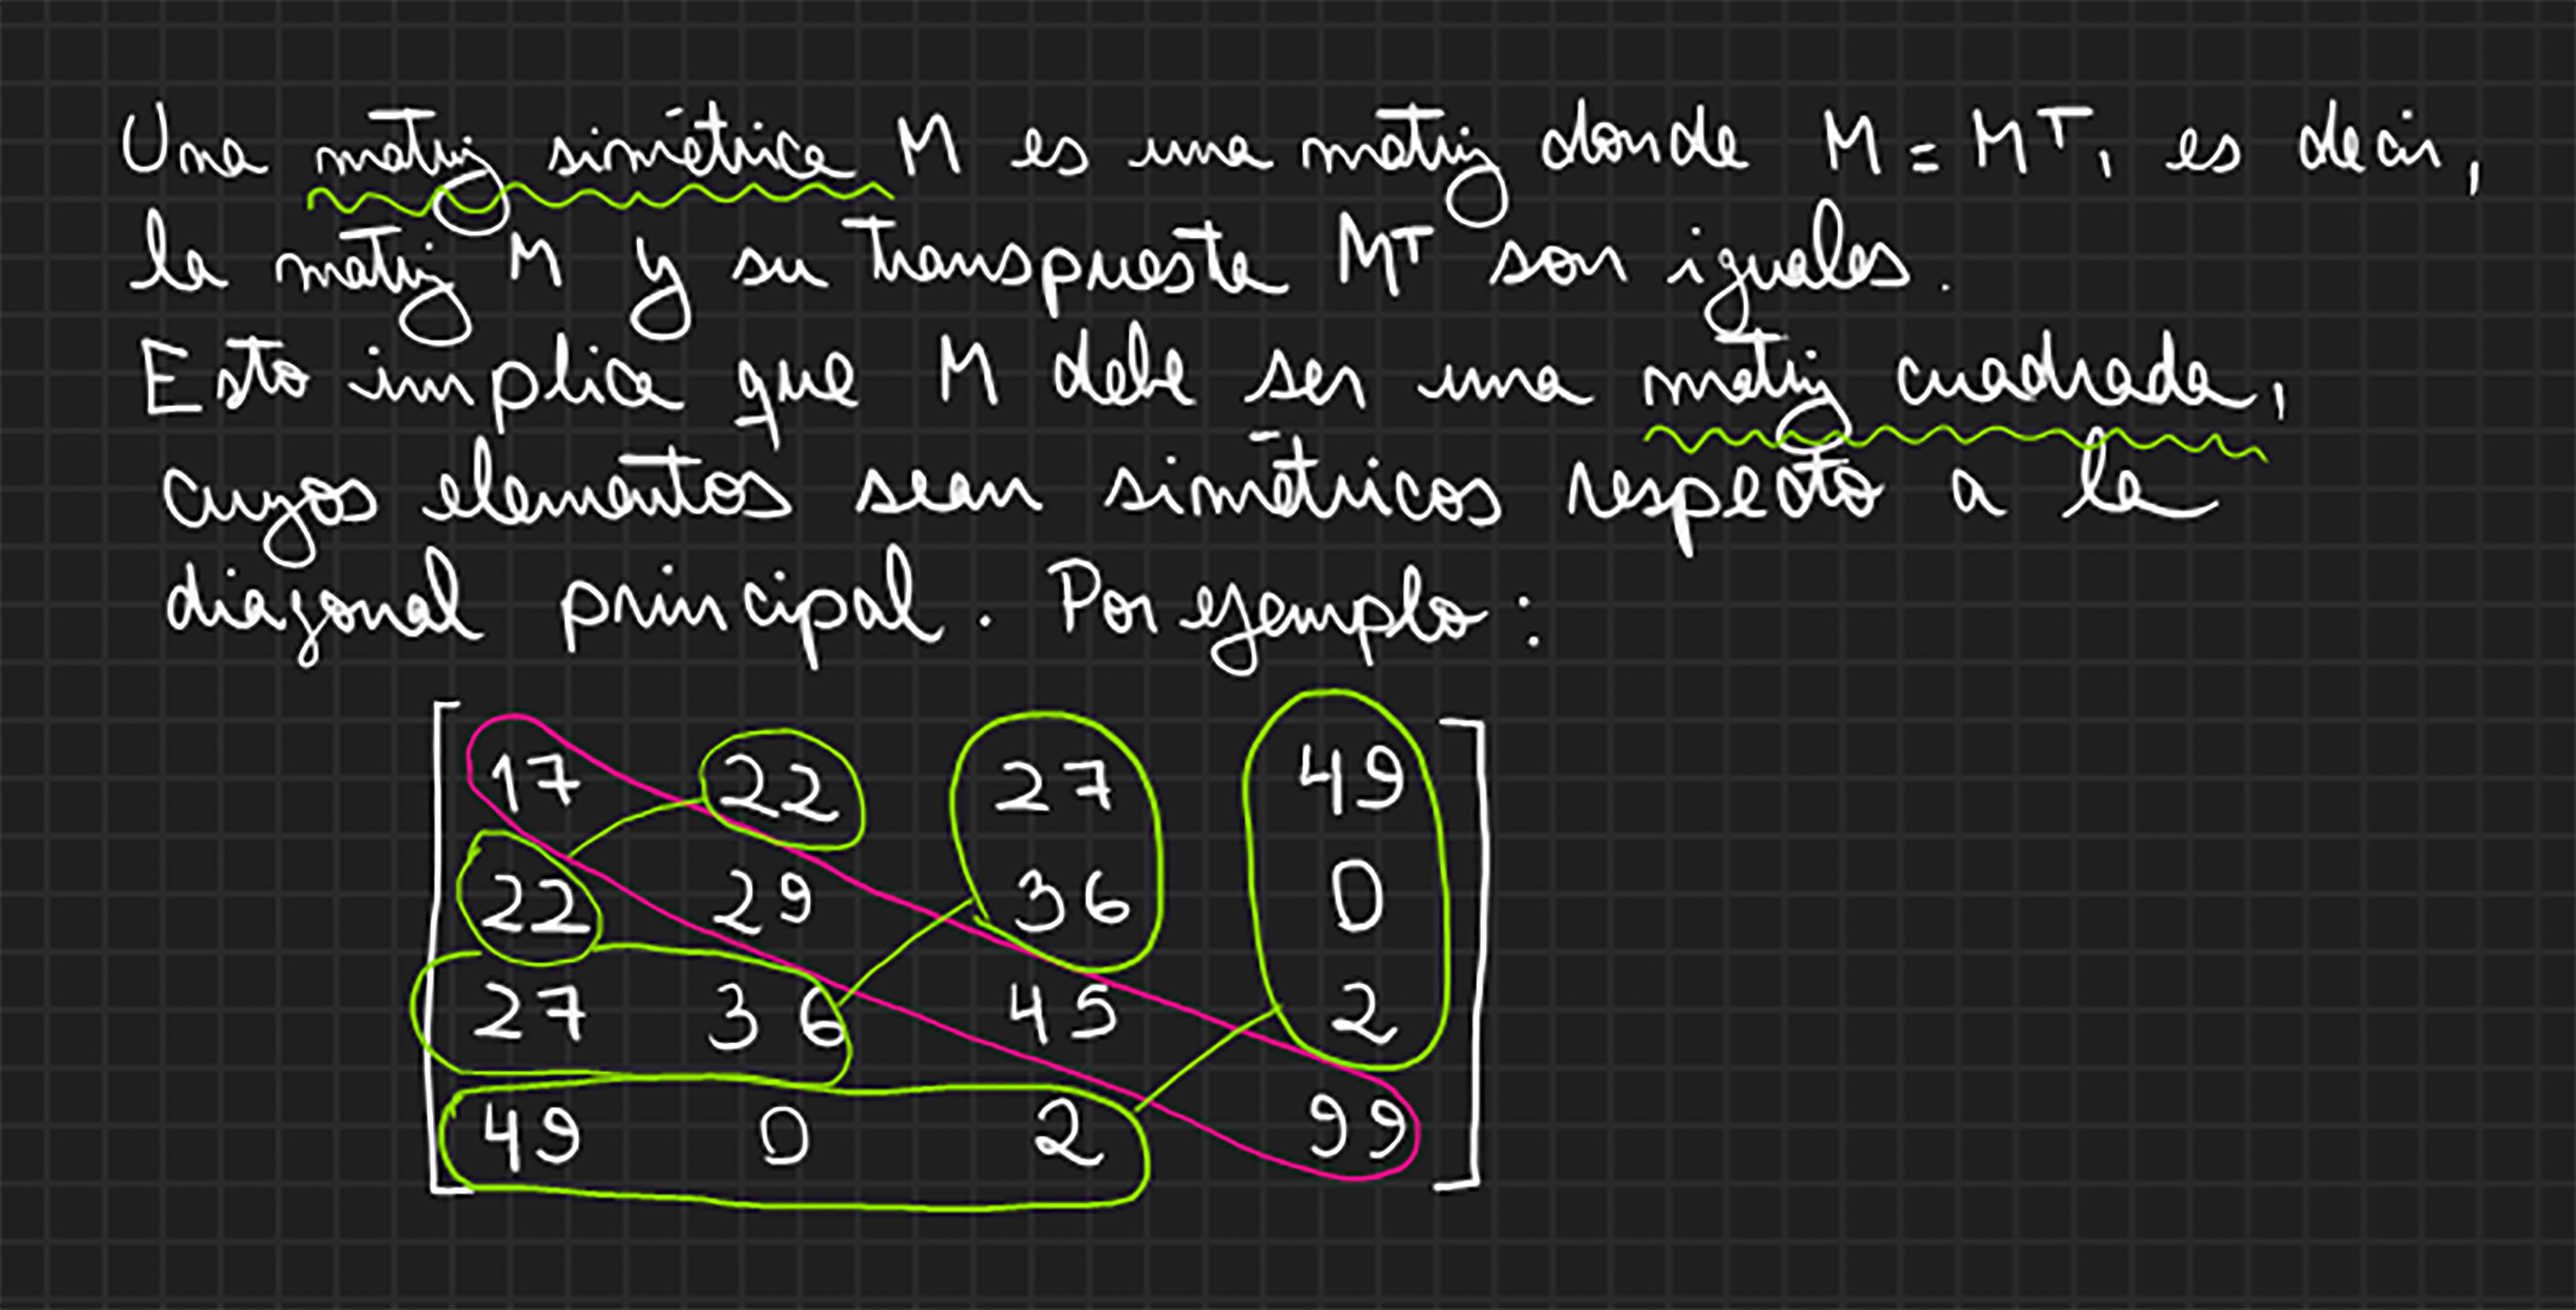 Una matriz simétrica M es una matriz donde M = Mᵀ, es decir,
la matriz M y su transpuesta Mᵀ son iguales.
Esto implica que M debe ser una matriz cuadrada,
cuyos elementos sean simétricos respecto a la
diagonal principal. Por ejemplo:
17 22 27 49
22 29 36 0
27 36 45 2
49 0 2 99